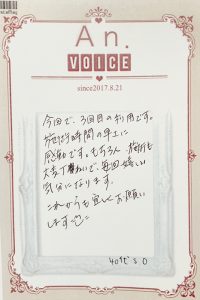 An.
VOICE
since2017.8.21
今回で、3回目の利用です。
施術時間の早さに
感動です。もちろん、施術も
大変丁寧で、毎回嬉しい
気分になります。
これからも宜しくお願い
します
40代 S O